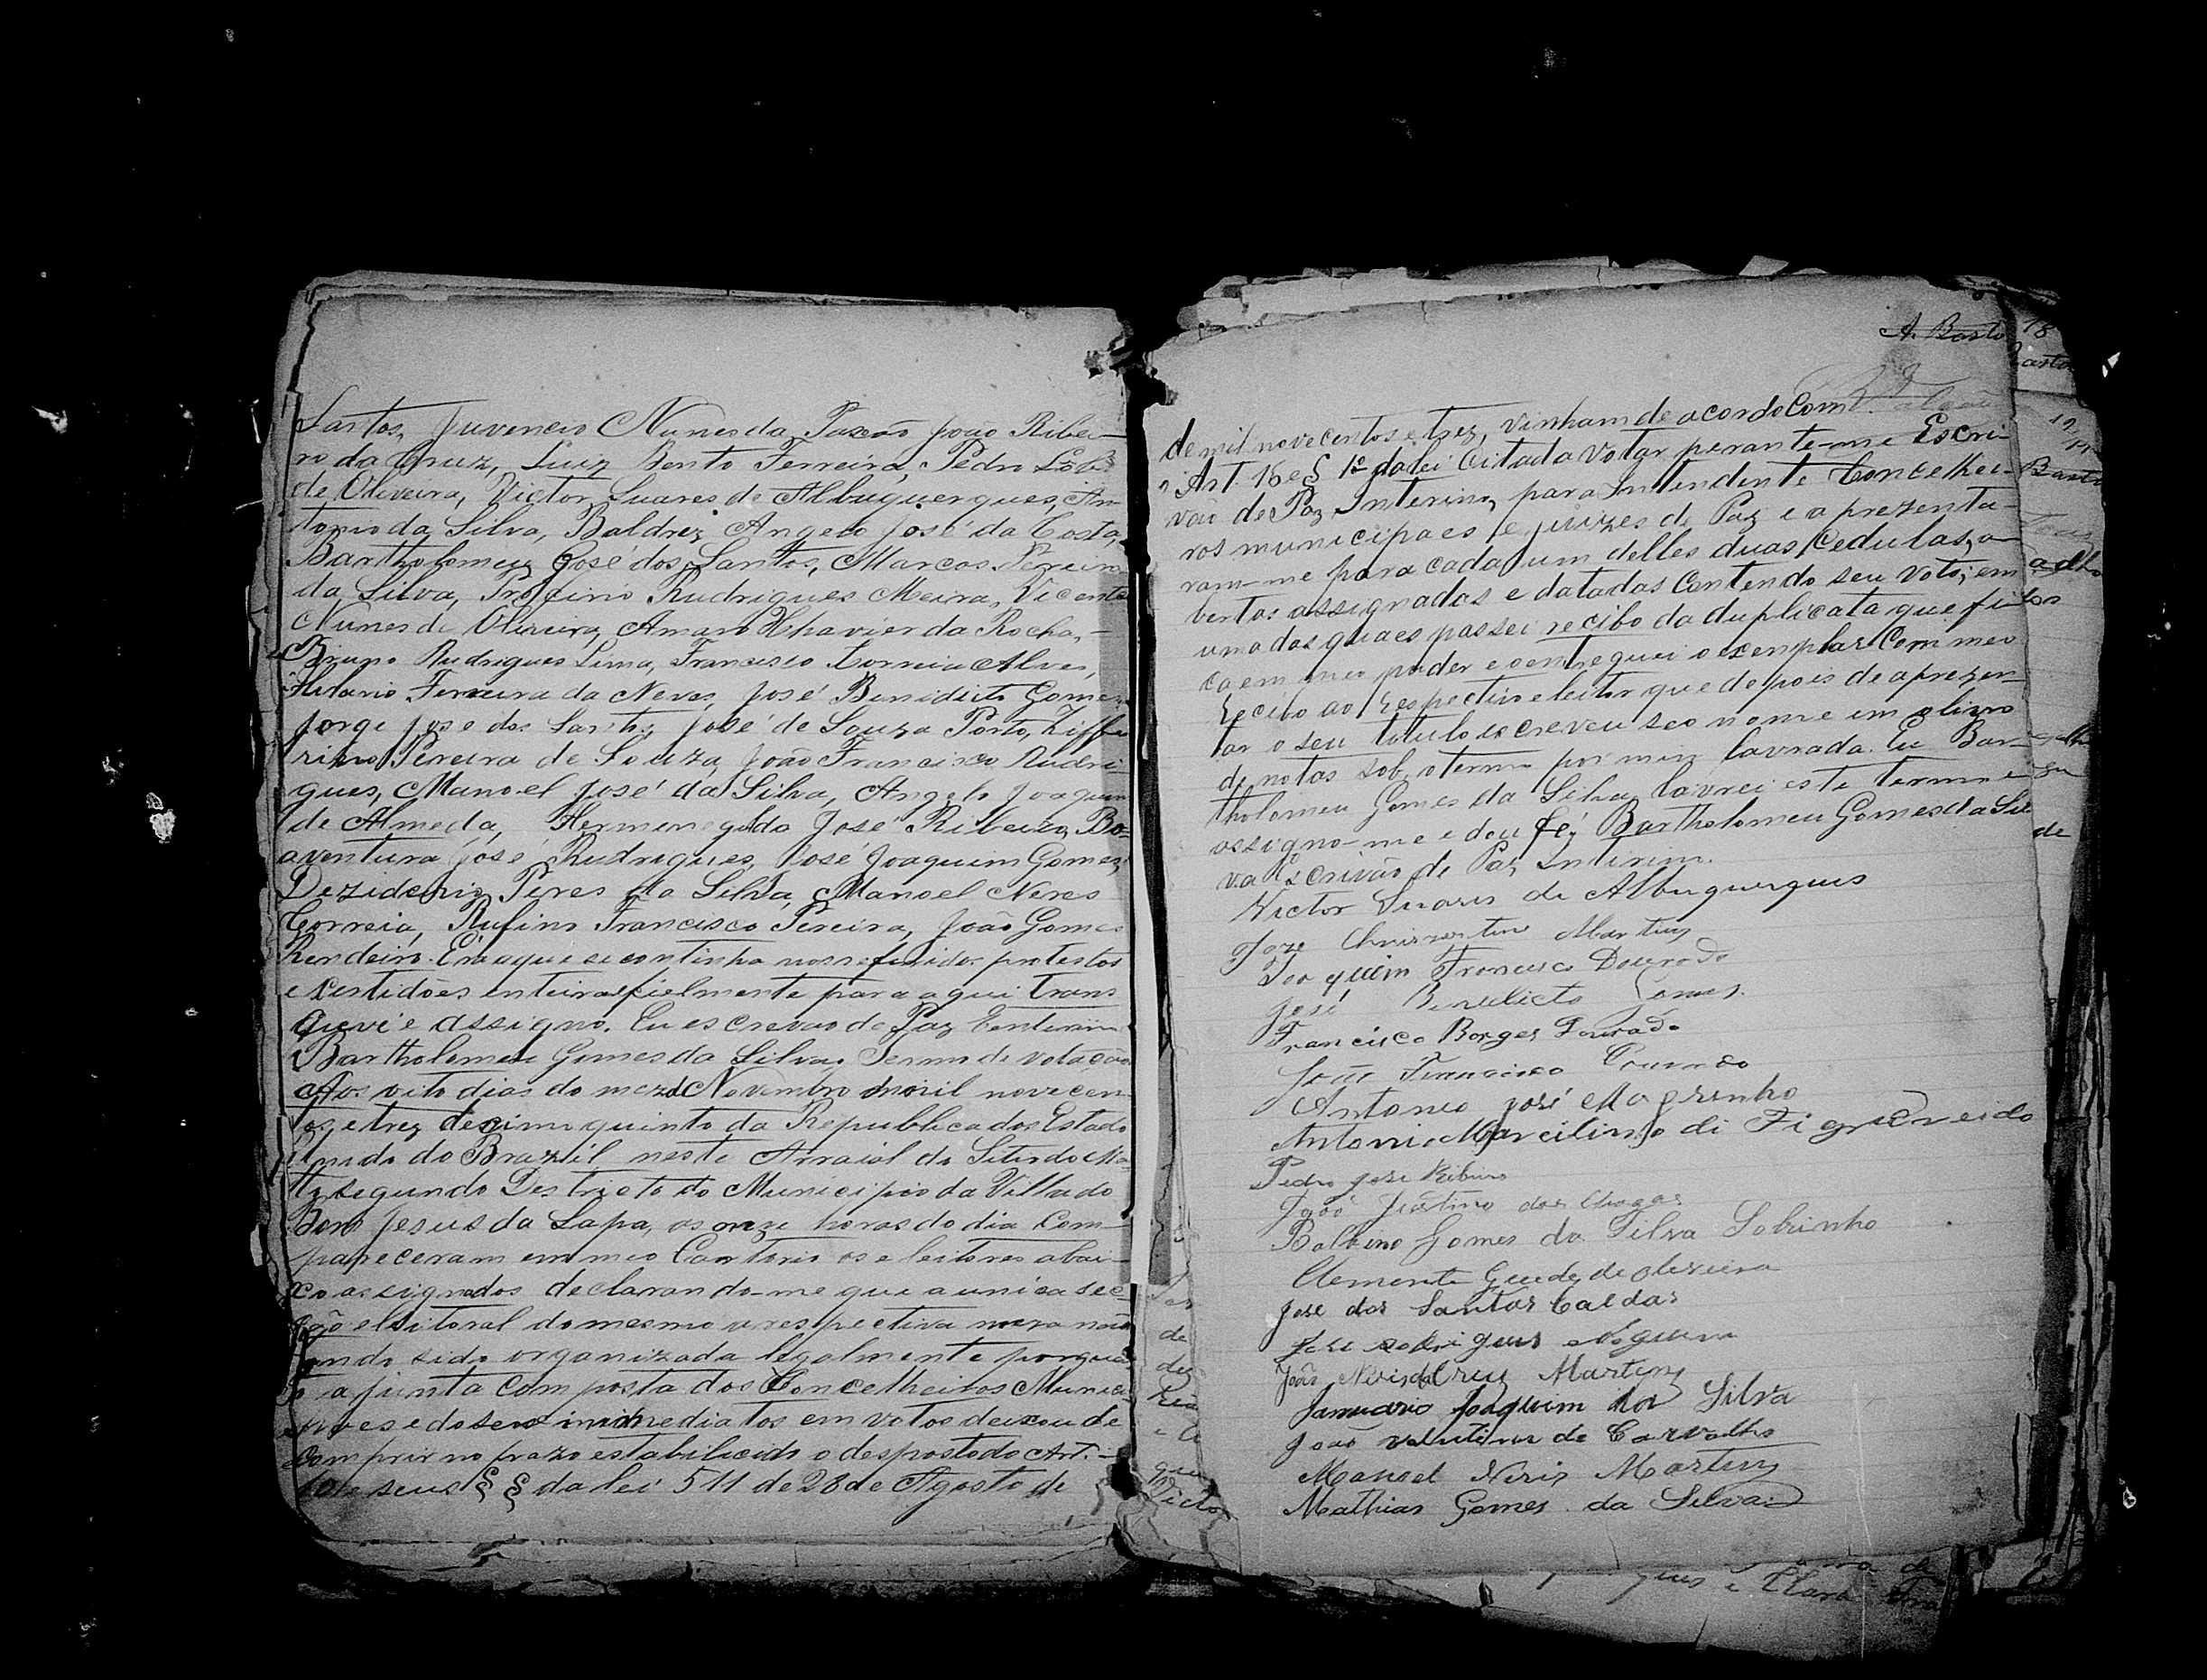 Santos, Juvencio Nunes da Paixão João Ribei-
ro da Cruz, Luiz Bento Ferreira, Pedro Lobo
de Oliveira, Victor Suares de Albuquerques, An-
tonio da Silva, Baldrez Angelo José da Costa,
Bartholomeu José dos Santos, Marcos Pereira
da Silva, Profirio Rudrigues Meira, Vicente
Nunes de Oliveira, Amaro Xhavier da Rocha,-
Bruno Rudrigues Lima, Francisco Correia Alves,
Hilario Ferreira da Neves, José Binidito Gomes
Jorge José dos Santos, José de Souza Porto, Ziffe
rino Pereira de Souza, João Francisco Rudri-
gues, Manoel José da Silva, Angelo Joaquim
de Almeda, Hermenegildo José Ribeiro, Bo-
aventura José Rudrigues, José Joaquim Gomes,
Deziderio Peres da Silva, Manoel Neres
Correia, Rufino Francisco Pereira, João Gomes
Rendeiro. Era aque se continha nos referidos protestos
e Certidões enteira e fielmente para aqui trans
crevi e assigno. Eu escrevão de Paz Enterino
Bartholomeu Gomes da Silva. Termo de votação
Aos oito dias do mez de Novembro de mil novecen
tos, e trez decimo quinto da Republica dos Estado
Unido do Brazil neste Arraial do Sitio do Ma-
to, segundo Destricto do Municipio da Villa do
Bom Jesus da Lapa, as onze horas do dia Com-
pareceram em meo Cartorio os eleitores abai-
xo assignados declarando-me que a unica sec-
ção elleitoral do mesmo a respectiva meza não
tendo sido organizada legalmente porque
a junta Composta dos Concelheiros Munici
paes e do seos immediatos em votos deixou de
Comprir no prazo estabilicido o desposto do Art.-
10 e seus § § da lei 511 de 28 de Agosto de
A. Basto
18
de mil novecentos e trez, vinham de acordo Com
o Art. 16 e § 1º da lei Citada votar perante-me Escri-
vão de Paz Interino, para Intendente Concelhei-
ros municipaes e juizes de Paz e aprezenta-
ram-me para cada um delles duas Cedulas, a-
bertas assignadas e datadas Contendo seu voto; em
uma das quaes passei recibo da duplicata que fi
ca em meo poder e o entreguei o exemplar Com meo
Recibo ao Respectivo eleitor que depois de aprezen-
tar o seu titulo escreveu seo nome em o livro
de notas sob o termo por mim lavrada. Eu Bar-
tholomeu Gomes da Silva, lavrei este termo e
assigno-me e dou fé. Bartholomeu Gomes da Sil
va Escrivão de Paz, Interino.
Victor Suares de Albuquerques
Joze Martins
Joaquim Francisco Dourado
José Benedicto Gomes.
Francisco Borges Dourado
João Francisco Dourado
Antonio José Magrinho
Antonio Marcilino di Figuêreido
Pedro José Ribeiro
João Justino das Chagas
Balbino Gomes da Silva Sobrinho
Clemente Guedes de Oliveira
José dos Santos Caldas
José Rodrigues Nogueira
João Neris da Cruz Martins
Januario Joaquim da Silva
João Valentino de Carvalho
Manoel Neris Martins
Mathias Gomes da Silva